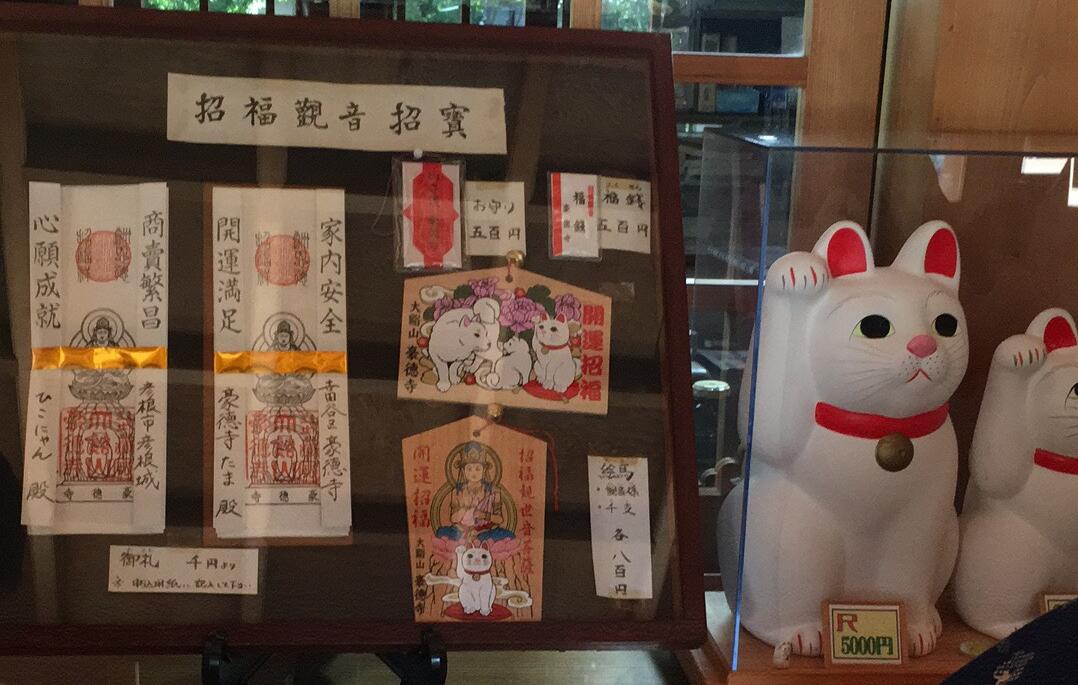 招福観音招寳
商賣繁昌
心願成就
彦根市彦根城
ひこにゃん
殿
豪徳寺
家内安全
開運満足
世田谷区豪徳寺
豪徳寺たま
殿
豪徳寺
御札 千円より
お守り
五百円
福銭
豪徳寺
ふくせん
福銭
五百円
開運招福
大谿山 豪徳寺
招福観世音菩薩
開運招福
大谿山 豪徳寺
絵馬
・観音様
・干支
各八百円
R
5000円